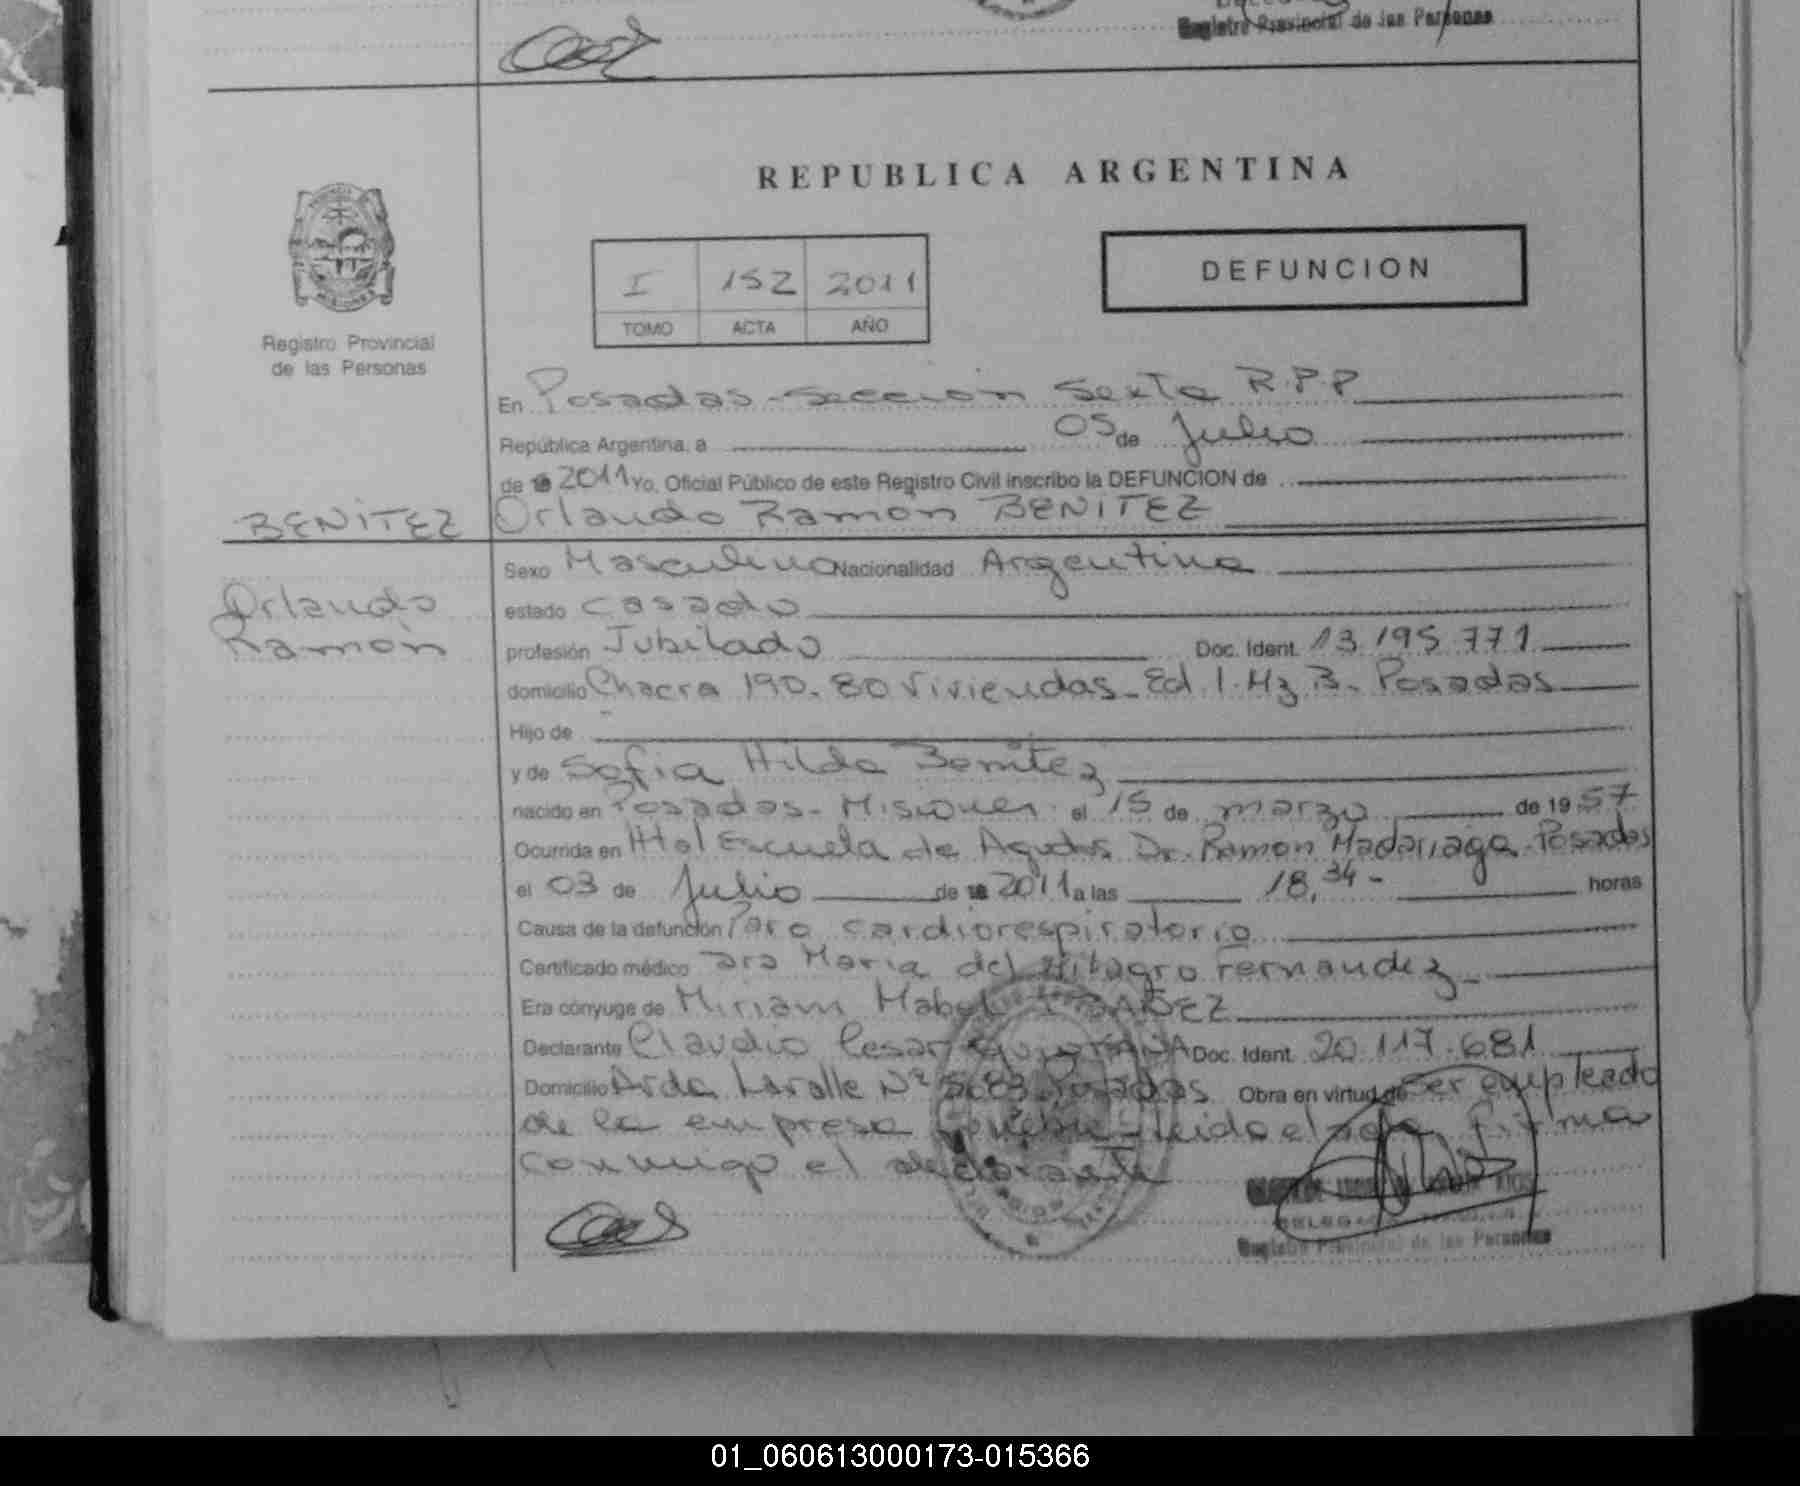 Registro Provincial de las Personas
REPUBLICA ARGENTINA
I 152 2011
TOMO ACTA AÑO
DEFUNCION
Registro Provincial
de las Personas
En Posadas - Sección Sexta R.P.P
República Argentina, a 05 de Julio
de 2011 Yo, Oficial Público de este Registro Civil inscribo la DEFUNCION de
BENITEZ Orlando Ramon BENITEZ
Orlando
Ramón
Sexo Masculino Nacionalidad Argentina
estado casado
profesión Jubilado Doc. Ident. 13.195.771
domicilio Chacra 190 - 80 Viviendas - Ed. 1 - Mz B - Posadas
Hijo de
y de Sofia Hilda Benítez
nacido en Posadas - Misiones el 15 de marzo de 1957
Ocurrida en Htal Escuela de Agudos Dr. Ramon Madariaga - Posadas
el 03 de Julio de 2011 a las 18,34 - horas
Causa de la defunción Paro cardiorespiratorio
Certificado médico Dra Maria del Milagro Fernandez
Era cónyuge de Miriam Mabel
Declarante Claudio Cesar Doc. Ident. 20.117.681
Domicilio Avda Lavalle Nº Posadas Obra en virtud de ser empleado
de la empresa leido el acta, firma
conmigo el declarante
Registro Provincial de las Personas
01_060613000173-015366